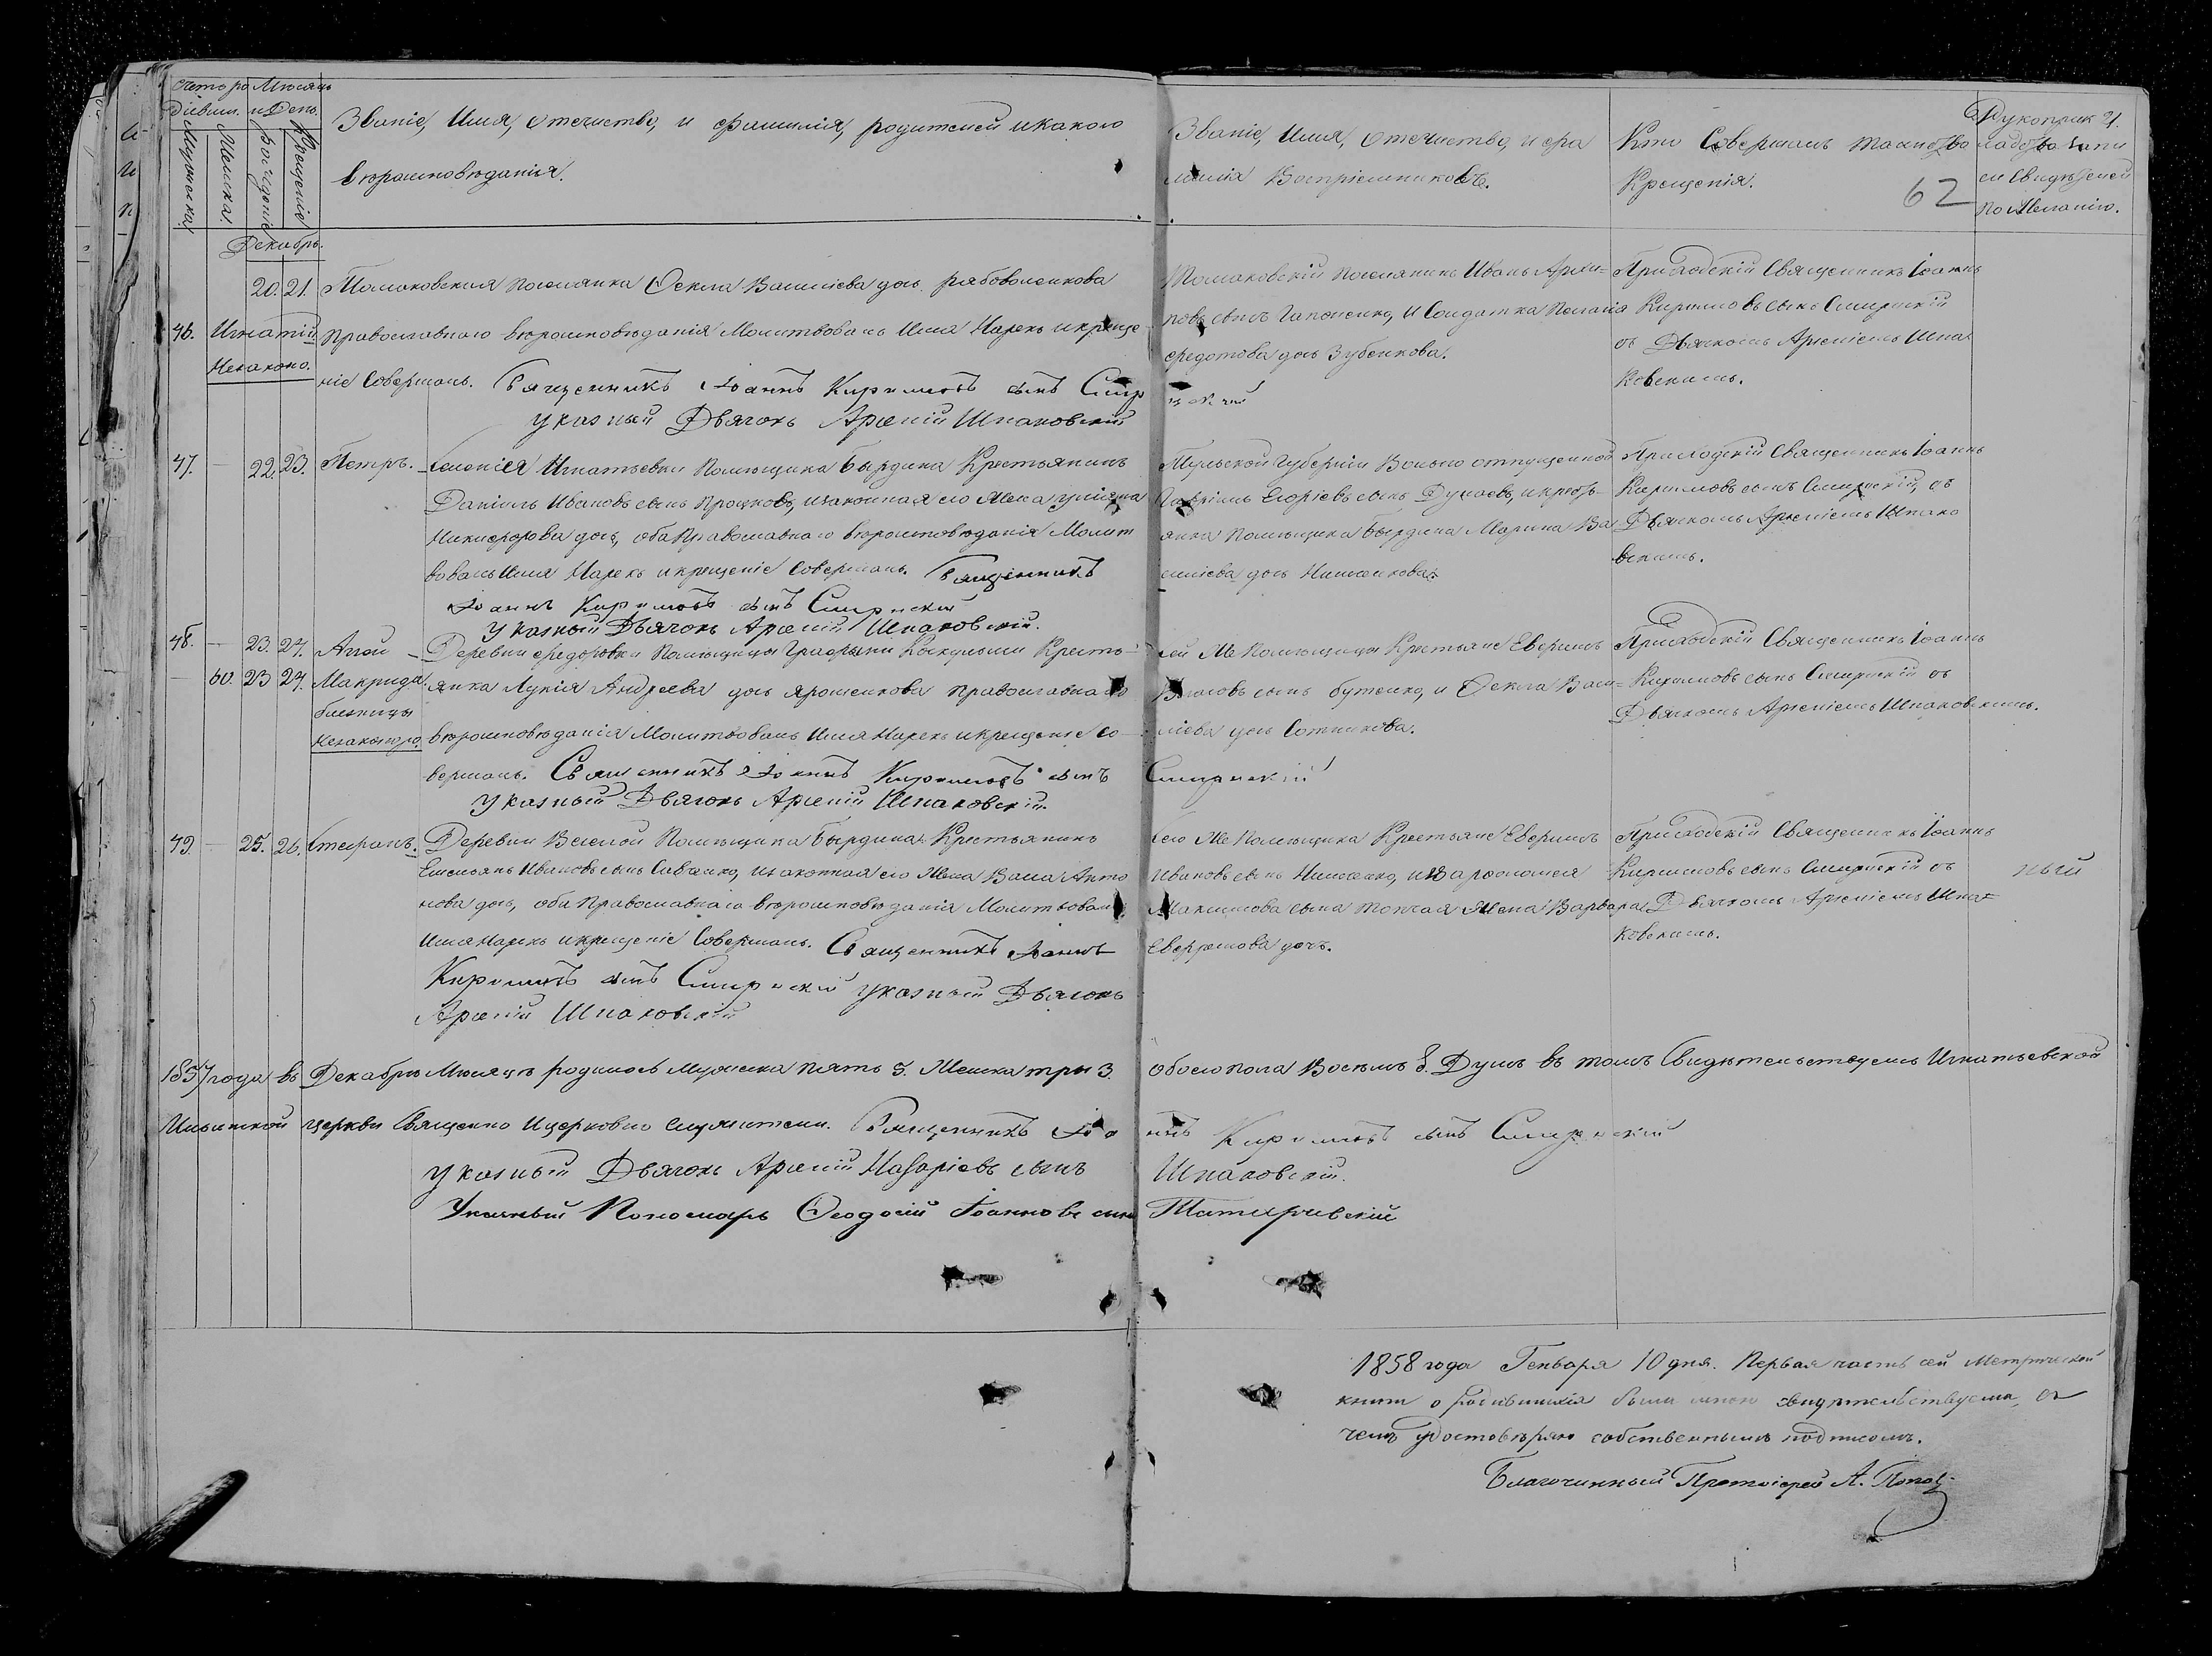 Счетъ ро
дівши.
Мѣсяцъ
и День.
Мужеска.
Женска.
Рожденіе
Крещеніе
Званіе, Имя, отечество, и фамилія, родителей икакого
вѣроисповѣданія.
Званіе, Имя, Отечество, и фа
милія Воспріемниковъ.
Кто Совершалъ таинство
Крещенія.
62
Рукоприк
ладство запи
си Свидѣтелей
по желанію.
Декабрь.
46.
20. 21.
Игнатій.
Незаконо.
Томаковская поселянка Ѳекла Василіева дочь Рябоволенкова
православнаго вѣроисповѣданія Молитвовалъ Имя Нарекъ икреще
ніе Совершалъ. Священникъ Іоаннъ Кириловъ сынъ Смир
указный Дьячокъ Арсеній Шпаковскій
Томаковскій поселянинъ Иванъ Архи=
повъ сынъ Гапоненко, и Солдатка Пелагія
Федотова дочь Зубенкова.
Приходскій Священникъ Іоаннъ
Кириловъ сынъ Смирнскій
съ Дьячкомъ Арсеніемъ Шпа
ковскимъ.
47. — 22. 23. Петръ.
Селенія Игнатьевки Помѣщика Бырдина Крестьянинъ
Даніилъ Ивановъ сынъ Процковъ, изаконная его Жена Уліяна
Никифорова дочь, оба Православнаго вѣроисповѣданія Молит
вовалъ Имя Нарекъ икрещеніе Совершалъ. Священникъ
Іоаннъ Кириловъ сынъ Смирнскій
Указный Дьячокъ Арсеній Шпаковскій.
Тульской Губерніи Вольно отпущенной
Гавріилъ Егоріевъ сынъ Дунаевъ, икресть-
янка Помѣщика Бырдина Марина Ва
силіева дочь Нищенкова.
Приходскій Священникъ Іоаннъ
Кириловъ сынъ Смирнскій, съ
Дьячкомъ Арсеніемъ Шпако
вскимъ.
48. — 23. 24.
— 60. 23 24. Макрида.
близнецы
незаконоро.
Деревни Федоровки Помѣщицы Графыни Крестья-
янка Лукія Андреева дочь Ярошенкова православнаго
вѣроисповѣданія Молитвовалъ Имя Нарекъ икрещеніе Со-
вершалъ. Священникъ Іоаннъ Кириловъ сынъ
Указный Дьячокъ Арсеній Шпаковскій.
Сей Же Помѣщицы Крестьяне Евфимъ
Власовъ сынъ Бутенко, и Ѳекла Васи=
ліева дочь Сотникова.
Смирнскій
Приходскій Священникъ Іоаннъ
Кириловъ сынъ Смирнскій съ
Дьячкомъ Арсеніемъ Шпаковскимъ.
49. — 25. 26. Стефанъ.
Деревни Веселой Помѣщика Бырдина Крестьянинъ
Емельянъ Ивановъ сынъ Савенко, изаконная его Жена Васса Анто
нова дочь, оба Православнаго вѣроисповѣданія Молитвовалъ
Имя Нарекъ икрещеніе Совершалъ. Священникъ Іоаннъ
Кириловъ сынъ Смирнскій указный Дьячокъ
Арсеній Шпаковскій
Сего Же Помѣщика Крестьяне Евфимъ
Ивановъ сынъ Нищенко, иВарфоломея
Максимова сына Топчая Жена Варвара
Евфремова дочь.
Приходскій Священникъ Іоаннъ
Кириловъ сынъ Смирнскій съ
Дьячкомъ Арсеніемъ Шпа=
ковскимъ.
1857 года въ Декабрѣ Мѣсяцѣ родилось Мужеска пять 5. Женска три 3. обоего пола Восемъ 8. Душъ въ томъ Свидѣтельствуемъ Игнатьевской
Ильинской церкви Священно Ицерковно служители. Священникъ Іоаннъ Кириловъ сынъ Смирнскій
Указный Дьячокъ Арсеній Назаріевъ сынъ Шпаковскій.
Указный Пономарь Ѳеодосій Іоанновъ сынъ
1858 года Генваря 10 дня. Первая часть сей Метрической
книги о родившихся была мною свидѣтельствуема, въ
чемъ удостовѣряю собственнымъ подписомъ.
Благочинный Протоіерей А. Поповъ